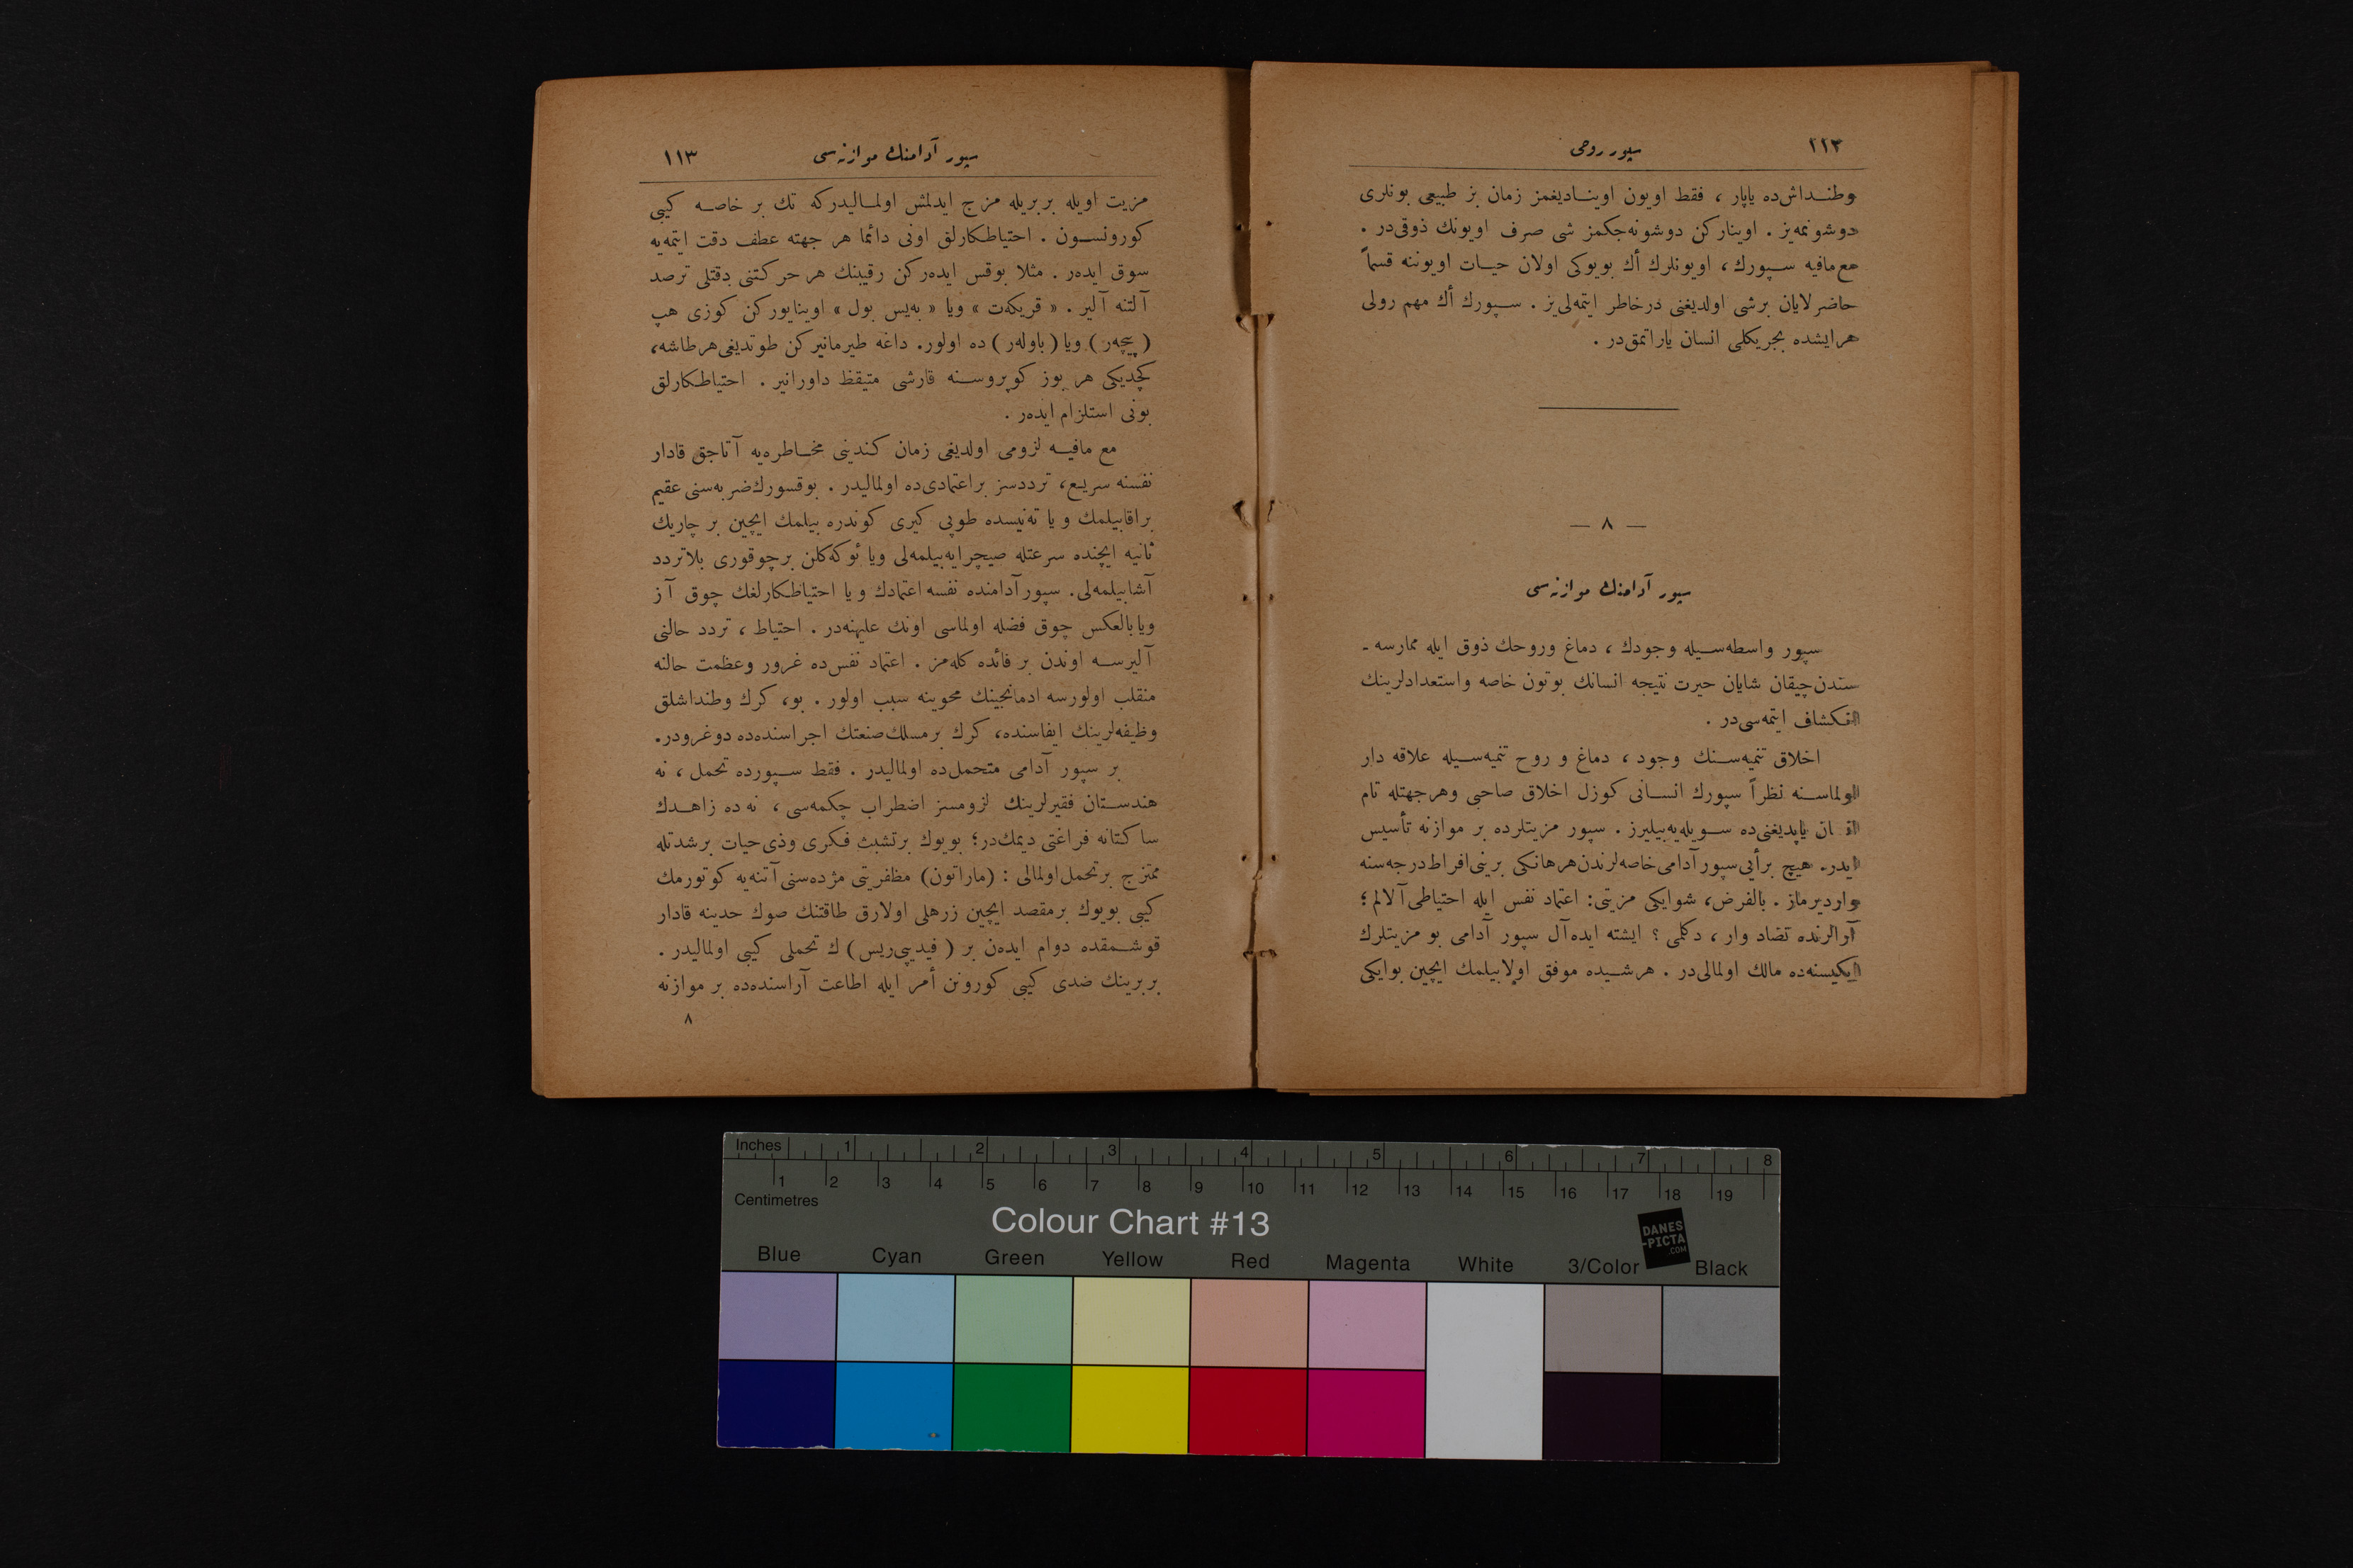 ١١٢
سپور روحی
وطنــداش‌ده یاپار ، فقط اویون اوینــادیغمز زمان بز طبیعی بونلری
دوشونمه‌یز . اوینارکن دوشونه‌جکمز شی صرف اویونك ذوقی‌در .
مع‌مافیه ســپورك ، اویونلرك أك بویوکی اولان حیــات اویوننه قسماً
حاضرلایان برشی اولدیغنی درخاطر ایتمه‌لی‌یز . ســپورك أك مهم رولی
هرایشده بجریکلی انسان یاراتمق‌در .
— ٨ —
سپور آدامنك موازنه‌سی
سپور واسطه‌ســیله وجودك ، دماغ وروحك ذوق ایله ممارسه ـ
سندن‌چیقان شایان حیرت نتیجه انسانك بوتون خاصه واستعدادلرینك
انکشاف ایتمه‌سی‌در .
اخلاق تنمیه‌ســنك وجود ، دماغ و روح تنمیه‌ســیله علاقه دار
اولماســنه نظراً سپورك انســانی کوزل اخلاق صاحبی وهرجهتله تام
یاپدیغنی‌ده ســویله‌یه‌بیلیرز . سپور مزیتلرده بر موازنه تأسیس
ایدر. هیچ برأیی‌سپور آدامی‌خاصه‌لرندن‌هرهانکی برینی‌افراط‌درجه‌سنه
واردیرماز . بالفرض، شوایکی مزیتی: اعتماد نفس ایله احتیاطی آلالم ؛
آرالرنده تضاد وار ، دکلمی ؟ ایشته ایده‌آل سپور آدامی بو مزیتلرك
ایکیسنه‌ده مالك اولمالی‌در . هرشــیده موفق اولابیلمك ایچین بوایکی
سپور آدامنك موازنه‌سی
١١٣
مزیت اویله بربریله مزج ایدلمش اولمــالیدرکه تك بر خاصــه کیبی
کورونســون . احتیاطکارلق اونی دائما هر جهته عطف دقت ایتمه‌یه
سوق ایده‌ر . مثلا بوقس ایده‌رکن رقیبنك هر حرکتنی دقتلی ترصد
آلتنه آلیر . « قریکه‌ت » ویا « به‌یس بول » اوینایورکن کوزی هپ
( پیچه‌ر ) ویا ( باوله‌ر ) ده اولور. داغه طیرمانیرکن طوتدیغی‌هرطاشه،
کچدیکی هر بوز کوپروســنه قارشی متیقظ داورانیر . احتیاطکارلق
بونی استلزام ایده‌ر .
مع مافیــه لزومی اولدیغی زمان کندینی مخــاطره‌یه آتاجق قادار
نفسنه سریع، ترددسز براعتمادی‌ده اولمالیدر . بوقسورك‌ضربه‌سنی عقیم
براقابیلمك و یا ته‌نیسده طوپی کیری کوندره بیلمك ایچین بر چاریك
ثانیه ایچنده سرعتله صیچرایه‌بیلمه‌لی ویا ئوکه‌کلن برچوقوری بلاتردد
آشابیلمه‌لی. سپور آدامنده نفسه اعتمادك و یا احتیاطکارلغك چوق آز
ویابالعکس چوق فضله اولماسی اونك علیهنه‌در . احتیاط ، تردد حالنی
آلیرســه اوندن بر فائده کله‌مز . اعتماد نفس‌ده غرور وعظمت حالنه
منقلب اولورسه ادمانجینك محوینه سبب اولور . بو، کرك وطنداشلق
وظیفه‌لرینك ایفاسنده، کرك برمسلك‌صنعتك اجراسنده‌ده دوغرودر.
بر سپور آدامی متحمل‌ده اولمالیدر . فقط ســپورده تحمل ، نه
هندســتان فقیرلرینك لزومسز اضطراب چکمه‌سی ، نه ده زاهــدك
ساکتانه فراغتی دیمك‌در؛ بویوك برتشبث فکری وذی‌حیات برشدتله
ممتزج برتحمل‌اولمالی : (ماراتون) مظفریتی مژده‌سنی آتنه‌یه کوتورمك
کیبی بویوك برمقصد ایچین زرهلی اولارق طاقتنك صوك حدینه قادار
قوشــمقده دوام ایده‌ن بر ( فیدیپی‌ریس ) ك تحملی کیبی اولمالیدر .
بربرینك ضدی کیبی کورونن أمر ایله اطاعت آراسنده‌ده بر موازنه
٨
Inches 1 2 3 4 5 6 7 8
1 2 3 4 5 6 7 8 9 10 11 12 13 14 15 16 17 18 19
Centimetres
Colour Chart #13
DANES
-PICTA
.COM
Blue Cyan Green Yellow Red Magenta White 3/Color Black